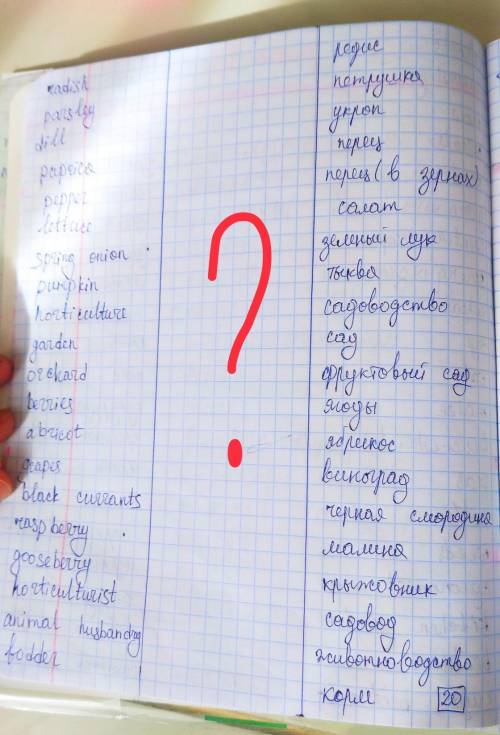 radish редис
parsley петрушка
dill укроп
paprica перец
pepper перец (в зернах)
lettuce салат
spring onion зеленый лук
pumpkin тыква
horticulture садоводство
garden сад
orchard фруктовый сад
berries ягоды
abricot абрикос
grapes виноград
black currants черная смородина
raspberry малина
gooseberry крыжовник
horticulturist садовод
animal husbandry животноводство
fodder корм 20
?